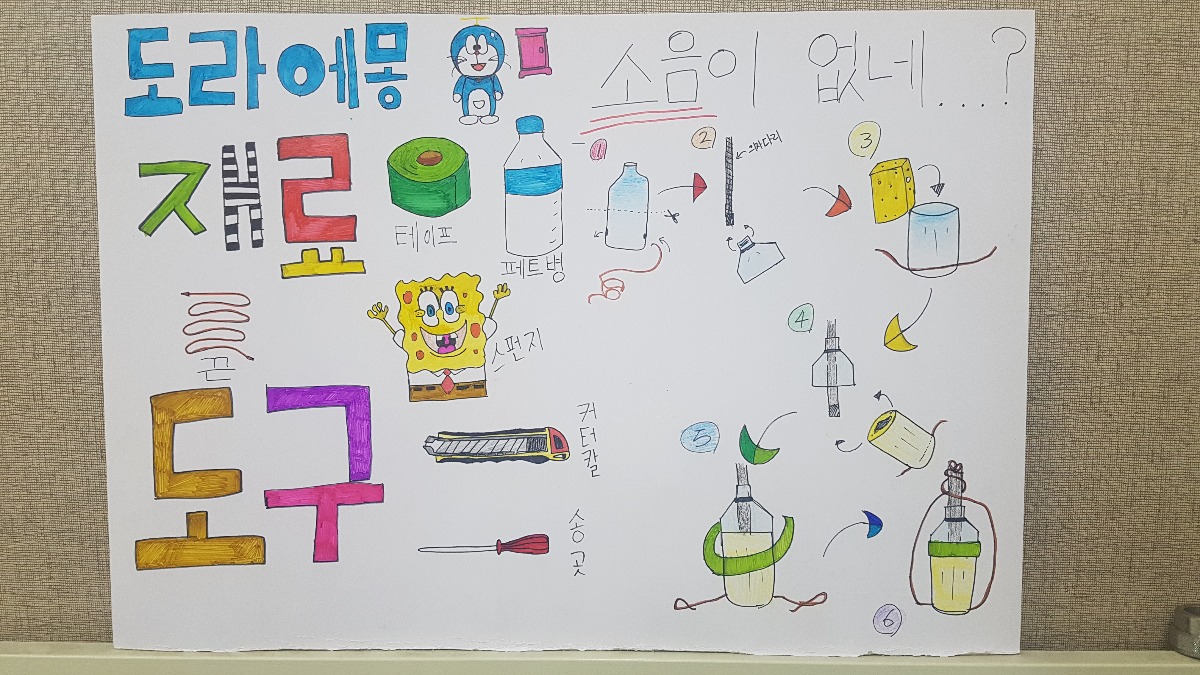 도라에몽
소음이 없네....?
재료
테이프
페트병
끈
스펀지
도구
커터칼
송곳
1
2
의자다리
3
4
5
6